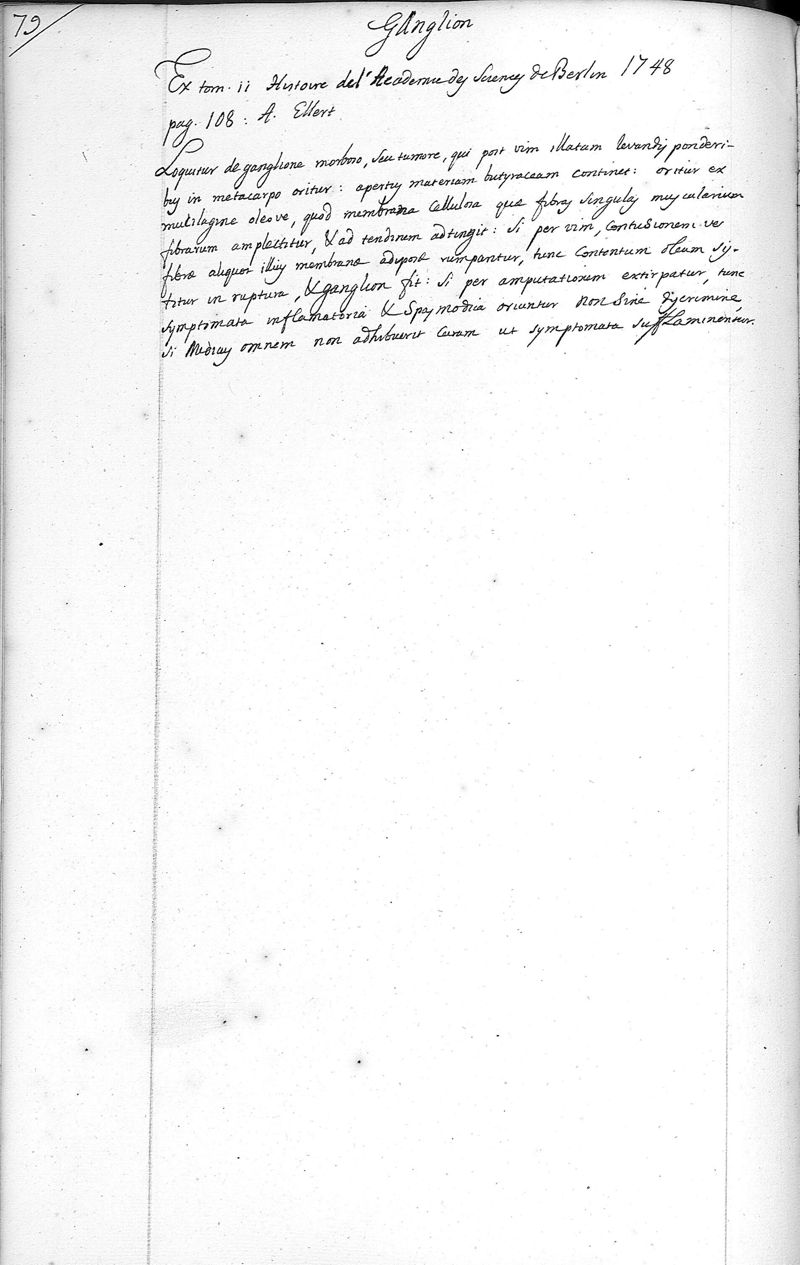 79
Ganglion
Ex tom. ii Histoire del'Academie des Sciences de Berlin 1748
pag. 108 : A. Ellert
Loquitur de ganglione morboso, seu tumore, qui post vim illatam levandis ponderi-
bus in metacarpo oritur : apertus materiam butyraceam continet : oritur ex
mukilagine oleove, quod membrana cellulosa quæ fibras singulas muscularium
fibrarum amplectitur, & ad tendinem adtingit : si per vim, contusionem ves
fibræ aliquot illius membranæ adiposæ rumpantur, tunc contentum oleum sis-
titur in ruptura, & ganglion fit : si per amputationem extirpatur, tunc
symptomata inflamatoria & Spasmodica oriuntur non sine discrimine
si Medicus omnem non adhibuerit curam ut symptomata sufflaminentur.